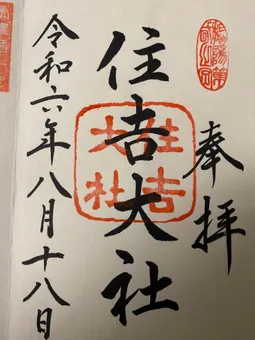 奉拝
住吉大社
住吉
大社
令和六年八月十八日